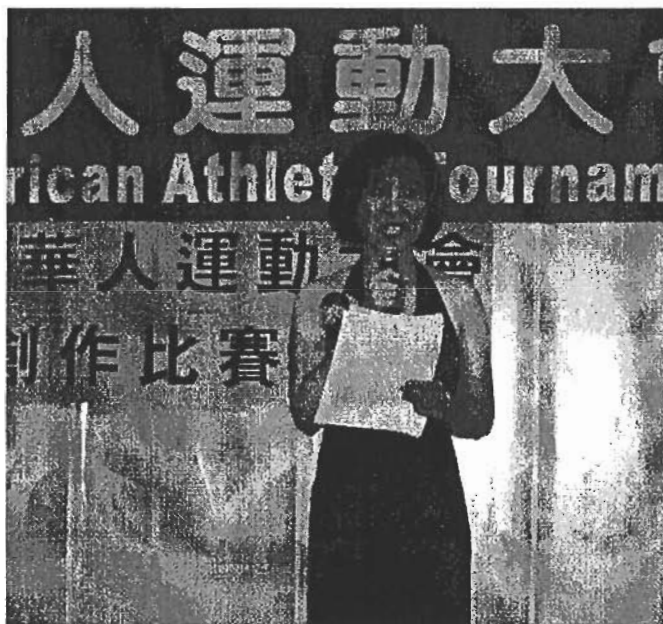 人運動大
rican Athlet Tournam
華人運動大會
創作比賽